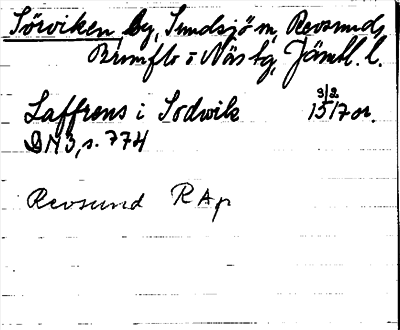 Sörviken, by, Sundsjö sn, Revsunds,
Brunflo o Näs tg, Jämtl. l.
Laffrens i Sodwik 3/2 1517 or.
DN 3, s. 774
Revsund RAp